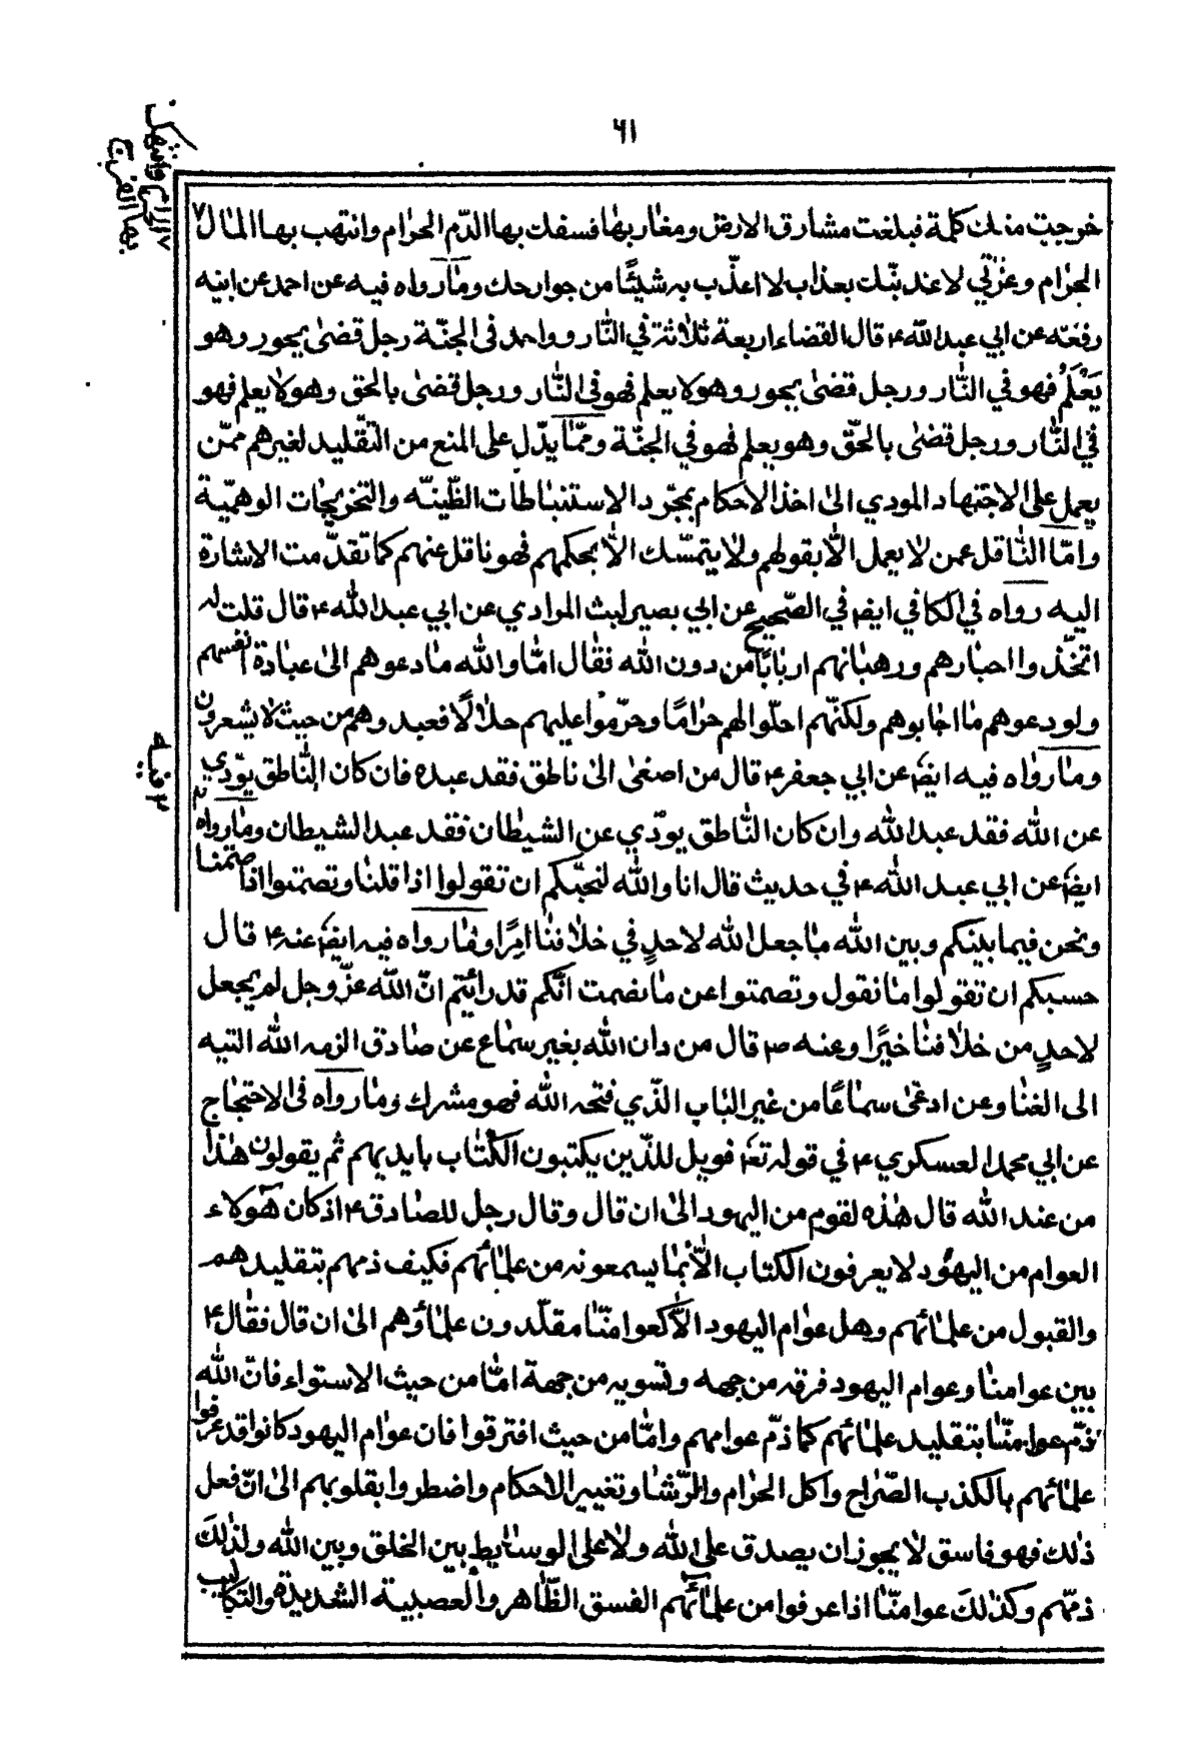 ٦١
خرجت منك كلمة فبلغت مشارق الارض ومغاربها فسفك بها الدّم الحرام وانتهب بها المال٧
الحرام وعزتي لاعذبنّك بعذاب لا اعذّب به شيئًا من جوارحك وما رواه فيه عن احمد عن ابيه
رفعه عن ابي عبد اللّه ع قال القضاء اربعة ثلاثة في النّار وواحد في الجنّة رجل قضى بجور وهو
يَعْلَمُ فهو في النّار ورجل قضى بجور وهو لا يعلم فهو في النّار ورجل قضى بالحق وهو لا يعلم فهو
في النّار ورجل قضى بالحقّ وهو يعلم فهو في الجنّة وممّا يدّل على المنع من التّقليد لغيرهم ممّن
يعمل على الاجتهاد المودي الى اخذ الاحكام بمجّرد الاستنباطات الظّينّه والتخريجات الوهميّة
وامّا النّاقل عمن لا يعمل الاّ بقولهم ولا يتمسّك الاّ بحكمهم فهو ناقل عنهم كما تقدّمت الاشارة
اليه رواه في الكافي ايضا في الصّحيح عن ابي بصير ليث المرادي عن ابي عبد الله ع قال قلت له
اتخّذوا احبارهم ورهبانهم اربابًا من دون الله فقال امّا والله ما دعوهم الى عبادة انفسهم
ولو دعوهم ما اجابوهم ولكنّهم احلّوا لهم حرامًا وحرّموا عليهم حلالًا فعبدوهم من حيث لا يشعرون
وما رواه فيه ايضا عن ابي جعفر ع قال من اصغى الى ناطق فقد عبده فان كان النّاطق يوّدي
عن الله فقد عبد الله وان كان النّاطق يوّدي عن الشيطان فقد عبد الشيطان وما رواه
ايضا عن ابي عبد الله ع في حديث قال انا والله لنحبّكم ان تقولوا اذا قلنا وتصمتوا اذا صمتنا
ونحن فيما بينكم وبين الله ما جعل الله لاحدٍ في خلافنا امرًا وما رواه فيه ايضا عنه ع قال
حسبكم ان تقولوا ما نقول وتصمتوا عن ما نصمت انّكم قد رائتم انّ الله عزّ وجل لم يجعل
لاحدٍ من خلافنا خيرًا وعنه ص قال من دان الله بغير سماع عن صادق الزمه الله التيه
الى الغنا وعن ادعى سماعًا من غير الباب الذّي فتحه الله فهو مشرك وما رواه في الاحتجاج
عن ابي محمد العسكري ع في قوله تعا فويل للذّين يكتبون الكتاب بايديهم ثم يقولون هذا
من عند الله قال هذه لقوم من اليهود الى ان قال وقال رجل للصادق ع اذ كان هولاء
العوام من اليهود لا يعرفون الكتاب الاّ بما يسمعونه من علمائهم فكيف ذمهم بتقليدهم
والقبول من علمائهم وهل عوام اليهود الاّ كعوامنّا مقلّدون علماؤهم الى ان قال فقال ع
بين عوامنا وعوام اليهود فرقه من جهه وتسويه من جهة امّا من حيث الاستواء فانّ الله
ذمّ عوامنّا بتقليد علمائهم كما ذمّ عوامهم وامّا من حيث افترقوا فان عوام اليهود كانوا قد عرفوا
علمائهم بالكذب الصّراح واكل الحرام والرّشا وتغيير الاحكام واضطروا بقلوبهم الى انّ فعل
ذلك فهو فاسق لا يجوز ان يصدق على الله ولا على الوسايط بين الخلق وبين الله ولذلك
ذمّهم وكذلك عوامنّا اذا عرفوا من علمائهم الفسق الظّاهر والعصبية الشديدة والتكالب
٧ الحرام وانتهك
بها الفرج
فيه